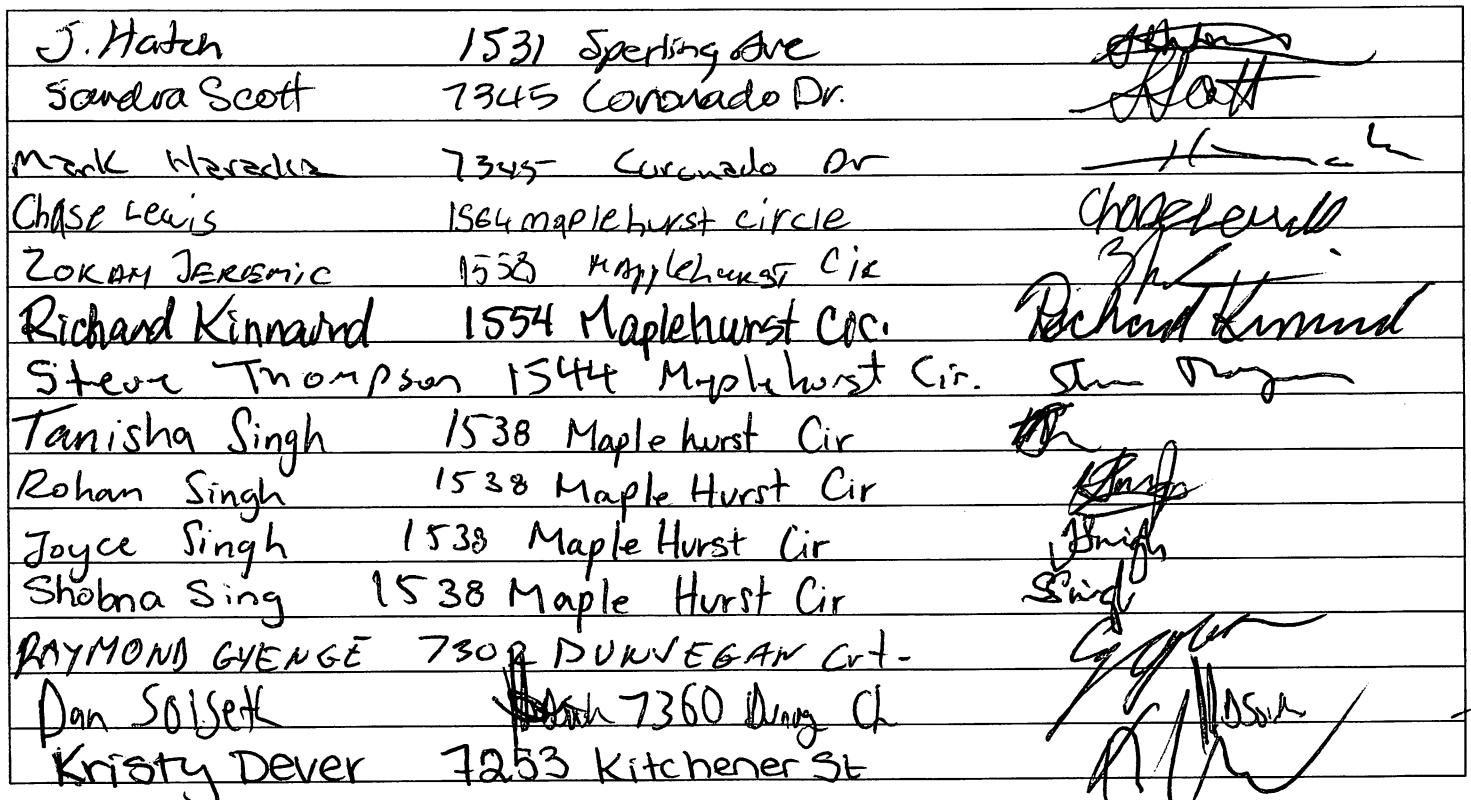 J. Hatch 1531 Sperling Ave
Sandra Scott 7345 Coronado Dr. SScott
Mark 7345 Coronado Dr
Chase Lewis 1564 maplehurst circle Chase Lewis
ZORAN JEREMIC 1558 MApplehuRST CiR
Richard Kinnaird 1554 Maplehurst Circ. Richard Kinnaird
Steve Thompson 1544 Maplehurst Cir.
Tanisha Singh 1538 Maple hurst Cir
Rohan Singh 1538 Maple Hurst Cir
Joyce Singh 1538 Maple Hurst Cir JSingh
Shobna Sing 1538 Maple Hurst Cir SSingh
RAYMOND GYENGE DUNVEGAN Crt.
Dan 7360
Kristy Dever 7253 Kitchener St